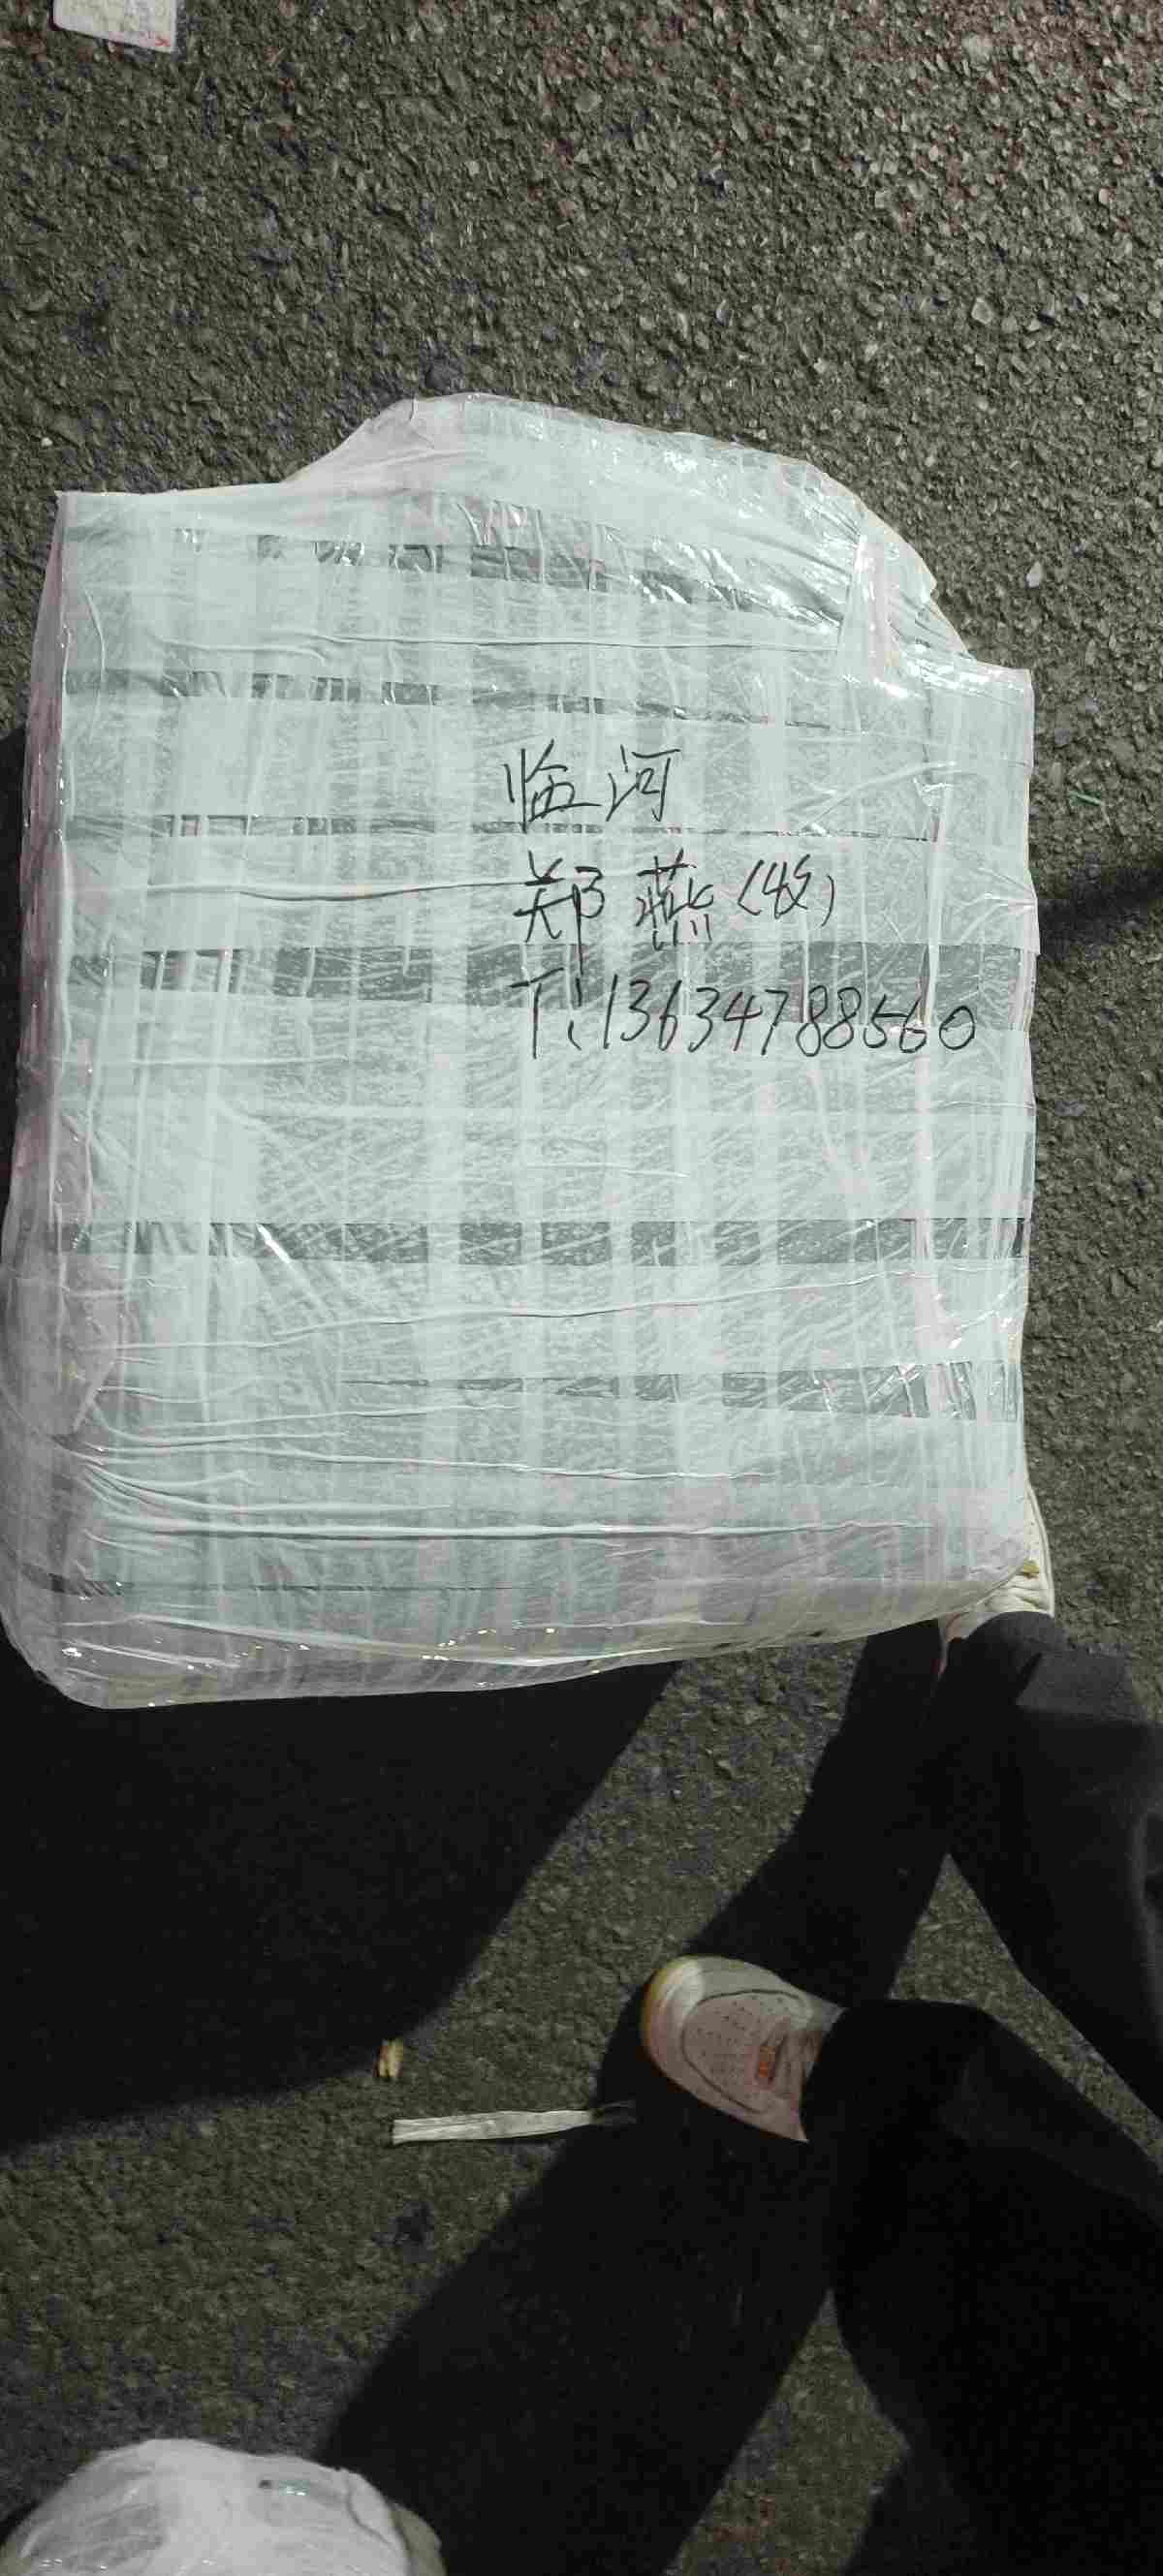 临河
郑燕(收)
T:13634788560